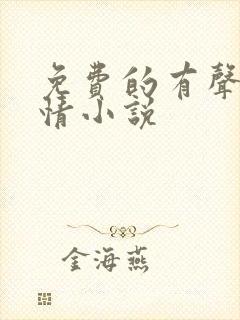 免費的有聲
情小說
金海燕